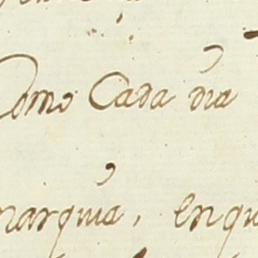 Como Cada dia
narquia, enqu